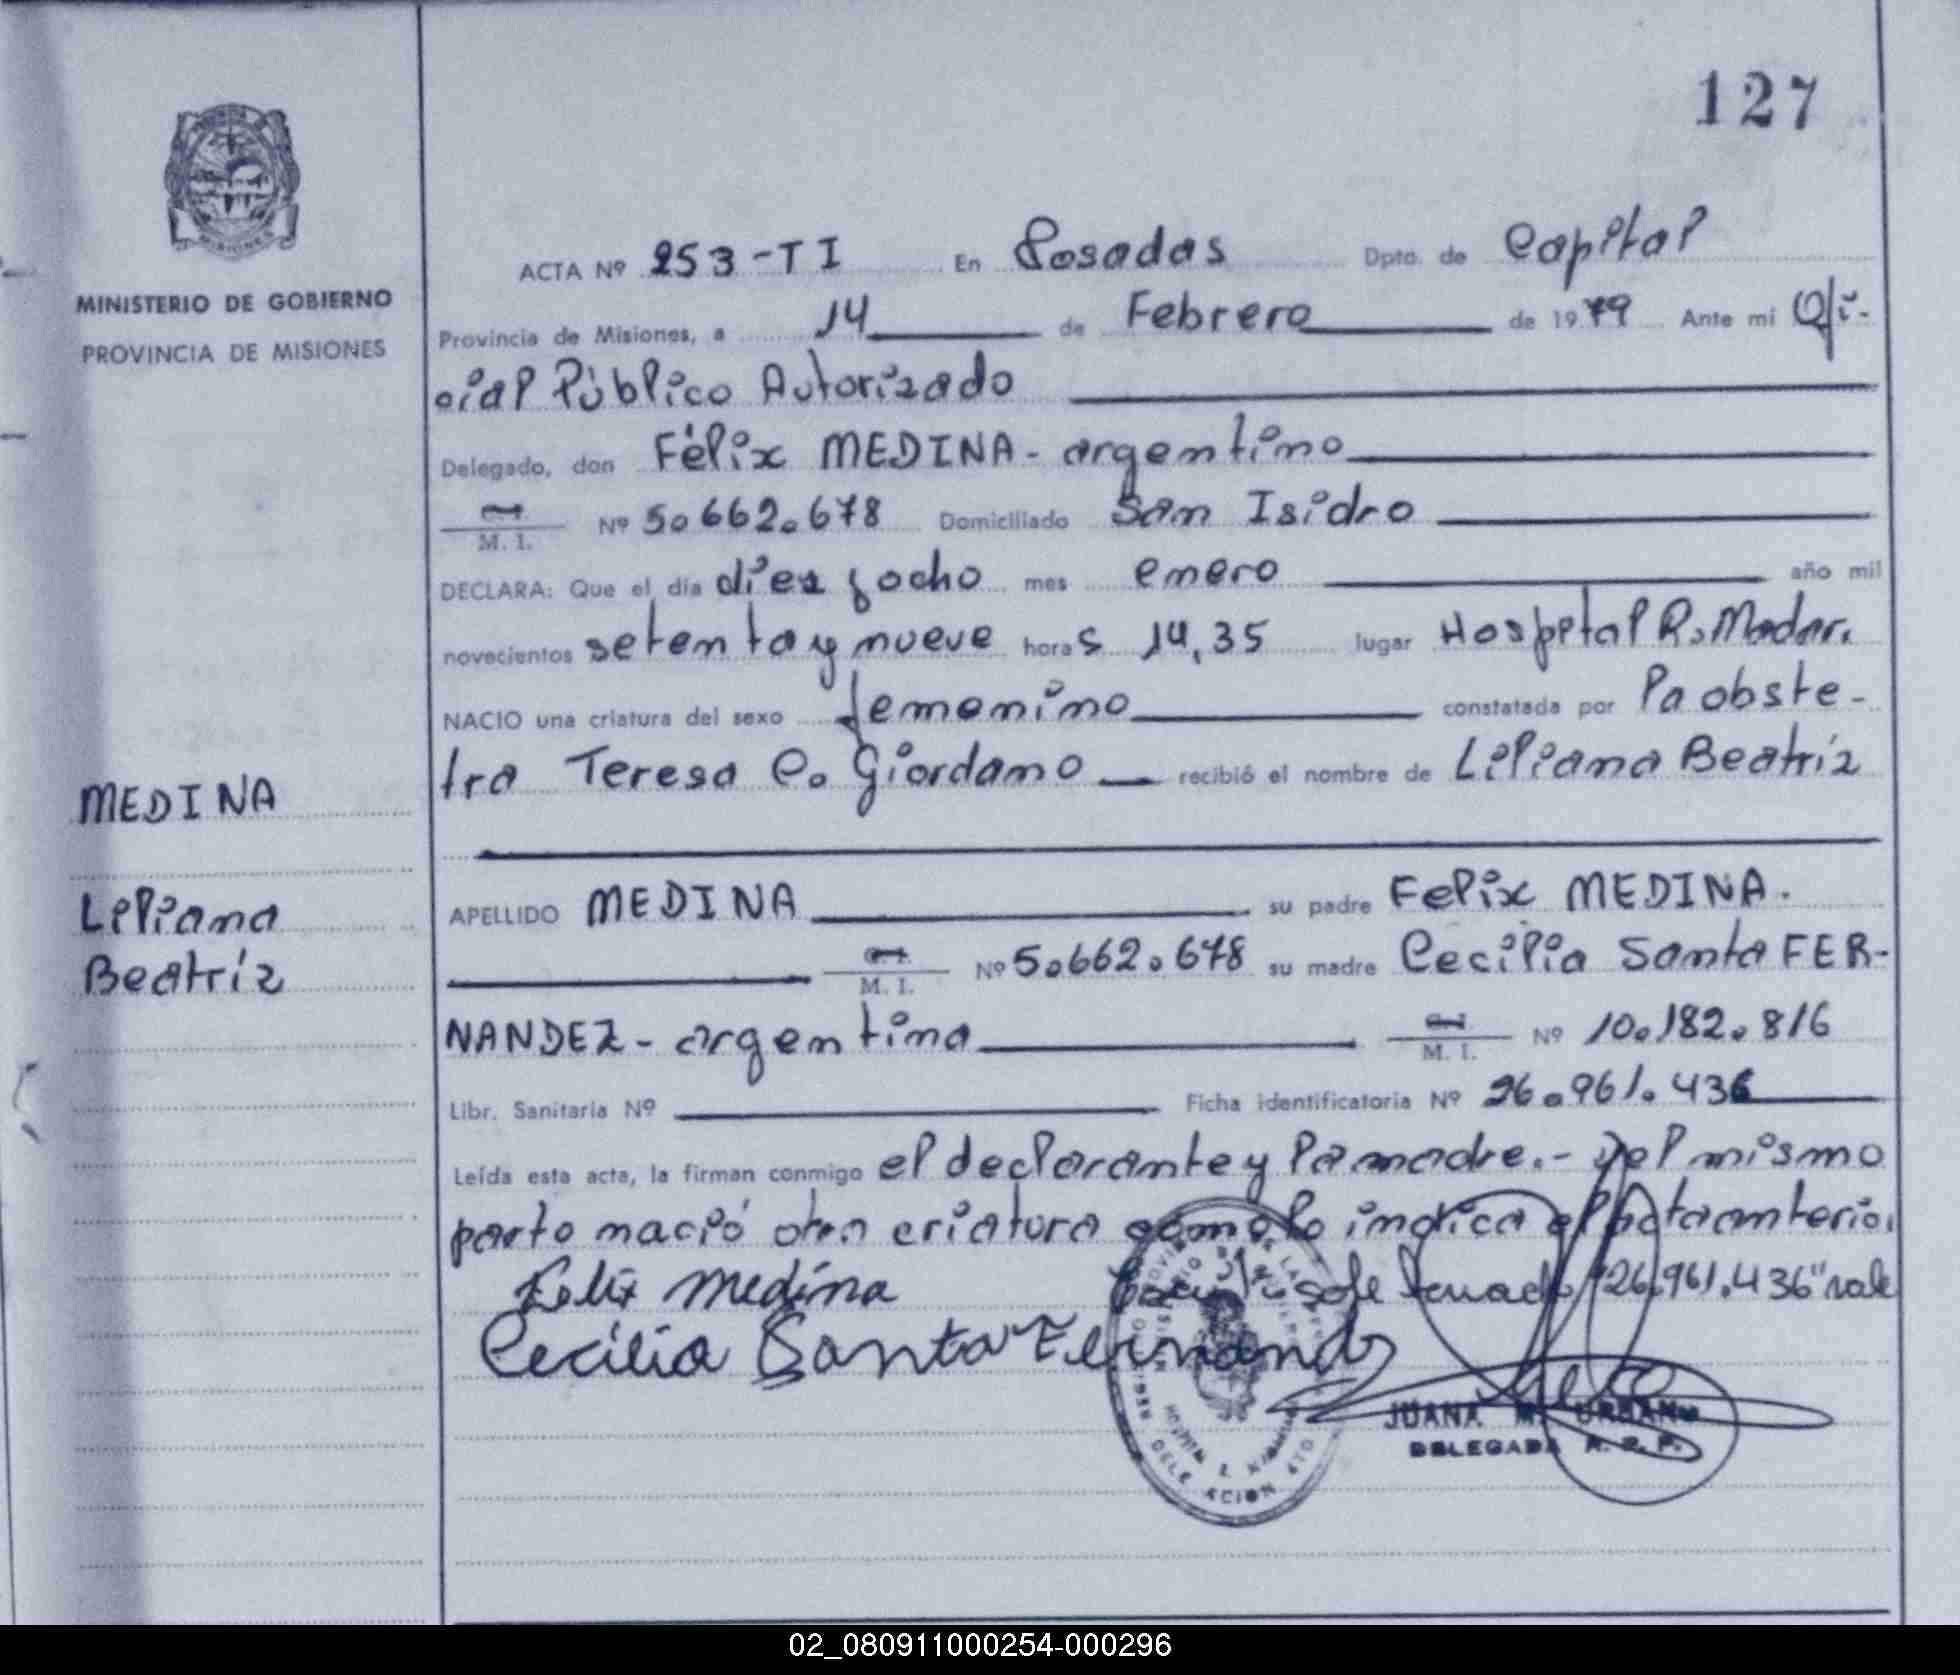 127
MINISTERIO DE GOBIERNO
PROVINCIA DE MISIONES
ACTA Nº 253-TI En Posadas Dpto. de Capital
Provincia de Misiones, a 14 de Febrero de 1979 Ante mi Ofi-
cial Público Autorizado
Delegado, don Félix MEDINA - argentino
M. I. Nº 5.662.678 Domiciliado San Isidro
DECLARA: Que el día diez y ocho mes enero año mil
novecientos setenta y nueve horas 14,35 lugar Hospital R. Madar.
NACIO una criatura del sexo femenino constatada por la obste-
tra Teresa C. Giordano recibió el nombre de Liliana Beatríz
MEDINA
Liliana
Beatríz
APELLIDO MEDINA su padre Felix MEDINA.
M. I. Nº 5.662.678 su madre Cecilia Santa FER-
NANDEZ - argentina M. I. Nº 10.182.816
Libr. Sanitaria Nº Ficha identificatoria Nº 26.961.436
Leída esta acta, la firman conmigo el declarante y la madre.- Del mismo
parto nació otra criatura como lo indica el acta anterior
Felix Medina "26.961.436" vale
Cecilia Santa Fernand
JUANA M. URBANO
DELEGADA R. P.
02_080911000254-000296